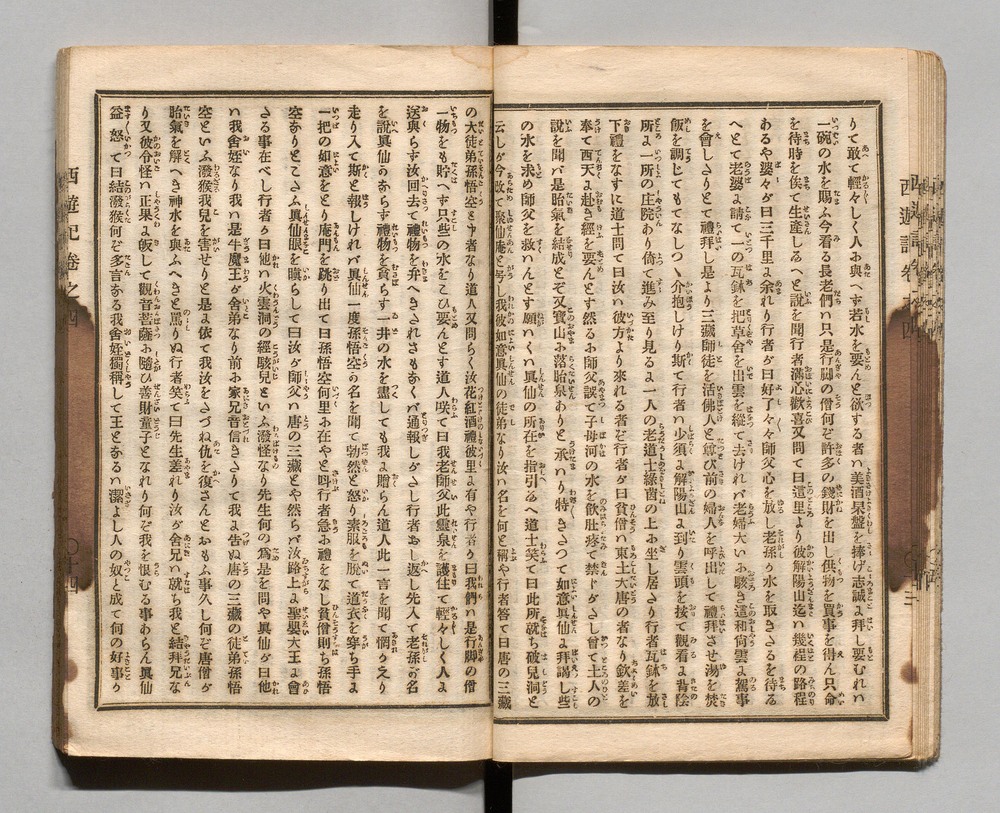 りて敢て輕々しく人お與へず若水を要んと欲する者ハ美酒杲盤を捧げ志誠ょ拜し要むれハ
一碗の水を賜ふ今看る長老們ハ只是行脚の僧何ぞ許多の錢財を出し供物を買事を得ん只命
を待時を俟て生產しるへと說を聞行者滿心歡喜又問て曰這里より彼解陽山迄ハ幾程の路程
あるや婆々が曰三千里ょ余れり行者が曰好了々々師父心を放し老孫り水を取きさるを待る
へとて老婆ょ請て一の瓦鉢を把草舍を出雲を縱て去けれバ老婦大いお駭き這和尙雲ょ駕事
を會しさりとて禮拜し是より三藏師徒を活佛人と尊び前の婦人を呼出して禮拜させ湯を焚
飯を調じてもてなしつゝ介抱しけり斯て行者ハ少須ょ解陽山ょ到り雲頭を按て觀看ょ背陰
所ょ一所の庄院あり倚て進み至り見るょ一人の老道士綠茵の上お坐し居さり行者瓦鉢を放
下禮をなすに道士問て曰汝ハ彼方より來れる者ぞ行者が曰貧僧ハ東土大唐の者なり欽差を
奉て西天ょ赴き經を要んとす然るお師父誤て子母河の水を飮肚疼て禁じがさし曾て土人の
說を聞バ是胎氣を結成とぞ又寶山お落胎泉ありと承ハり特きさつて如意眞仙ょ拜謁し些
の水を求め師父を救ハんとす願くハ眞仙の所在を指引るへ道士笑て曰此所就ち破兒洞と
云しが今改て聚仙庵と号し我彼如意眞仙の徒弟なり汝ハ名を何と稱や行者答て曰唐の三藏
の大徒弟孫悟空と申者なり道人又問らく汝花紅酒禮彼里ょ有や行者り曰我們ハ是行脚の僧
一物をも貯へず只些の水をこひ要んとす道人咲て曰我老師父此靈泉を護住て輕々しく人ょ
送與らず汝回去て禮物を弁へきされさもあくバ通報しがさし行者おし返し先入て老孫り名
を說眞仙のあらず禮物を貪らず一井の水を盡しても我ょ贈らん道人此一言を聞て惘々えり
走り入て斯と報しけれバ眞仙一度孫悟空の名を聞て勃然と怒り素服を脫て道衣を穿ち手ょ
一把の如意をとり庵門を跳り出て曰孫悟空何里お在やと呌行者急お禮をなし貧僧則ち孫悟
空ありとこさふ眞仙眼を瞋らして曰汝が師父ハ唐の三藏とや然らバ汝路上ょ聖嬰大王ょ會
さる事在べし行者り曰他ハ火雲洞の經駭兒といふ潑怪なり先生何の爲ょ是を問や眞仙が曰他
ハ我舍姪なり我ハ是牛魔王が舍弟なり前お家兄音信きさりて我ょ告ぬ唐の三藏の徒弟孫悟
空といふ潑猴我兒を害せりと是ょ依て我汝をさづね仇を復さんとおもふ事久し何ぞ唐僧が
胎氣を解へき神水を與ふへきと罵りぬ行者笑て曰先生差れり汝が舍兄ハ就ち我と結拜兄な
り又彼令怪ハ正果ょ皈して觀音菩薩お隨ひ善財童子となれり何ぞ我を恨むる事あらん眞仙
益怒て曰結潑猴何ぞ多言ある我舍姪獨稱して王とあるハ潔よし人の奴と成て何の好事り
西遊記卷之四